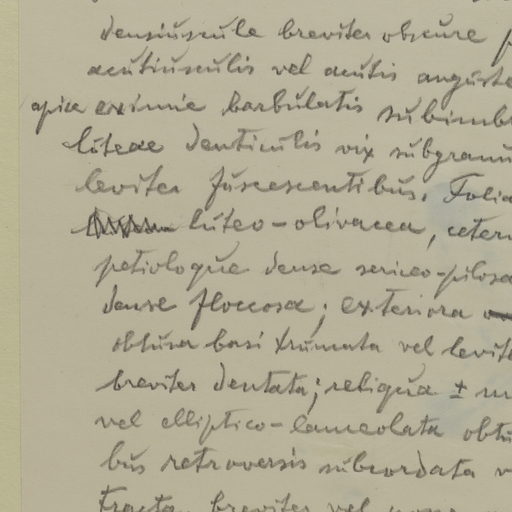 densiuscule breviter obscure
acutiusculis vel acutis anguste
apice eximie barbulatis subimbr
luteae denticulis vix subgranu
leviter fuscescentibus. Folia
luteo-olivacea, ceter
petioloque dense sericeo-pilosa
dense floccosa; exteriora
obtusa basi trumata vel levite
breviter dentata; reliqua ±
vel elliptico-lanceolata obtu
bus retroversis subcordata v
tracta, breviter vel